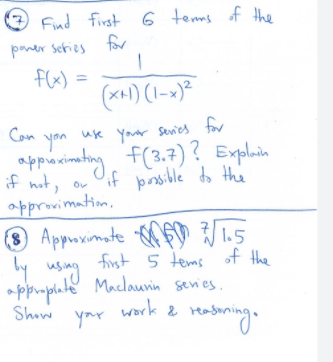 ⑦ Find first 6 terms of the
power series for
f(x) = 1 / (x+1)(1-x)²
Can you use your series for
approximating f(3.7)? Explain
if not, or if possible do the
approximation.
⑧ Approximate ⁷√1.5
by using first 5 terms of the
appropriate Maclaurin series.
Show your work & reasoning.